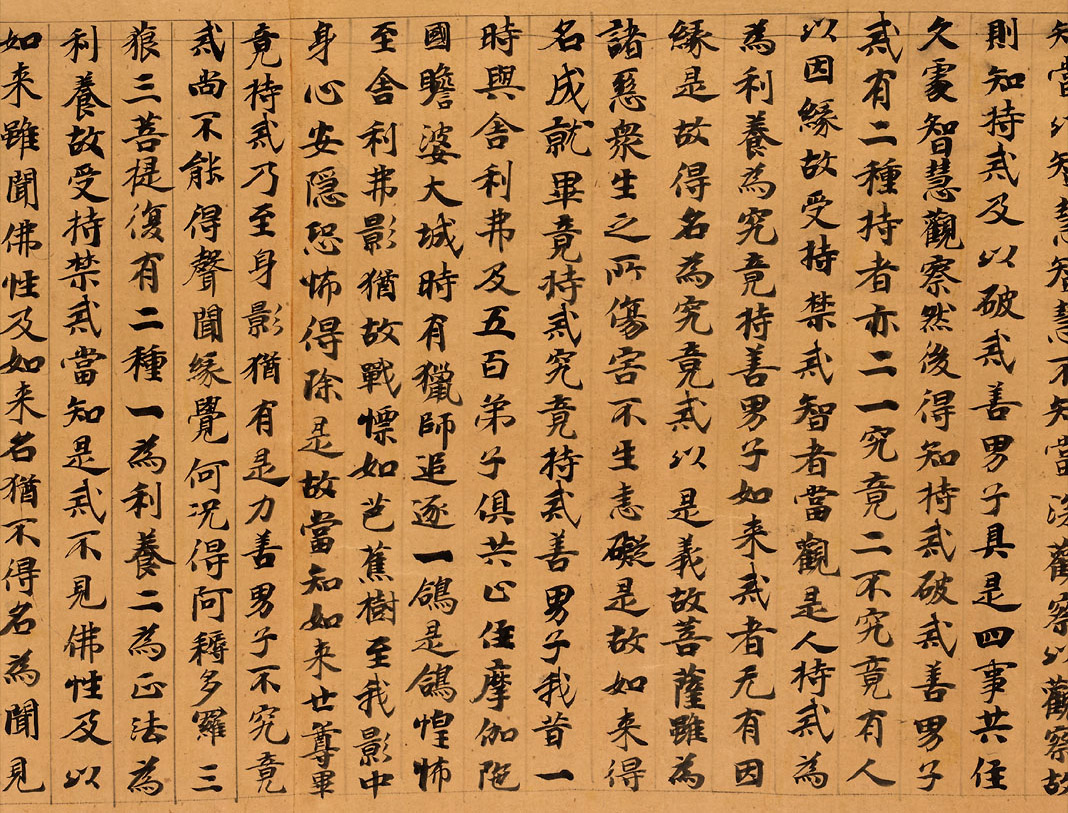 知當以智慧智慧不知當深觀察以觀察故
則知持戒及以破戒善男子具是四事共住
久處智慧觀察然後得知持戒破戒善男子
戒有二種持者亦二一究竟二不究竟有人
以因緣故受持禁戒智者當觀是人持戒為
為利養為究竟持善男子如来戒者无有因
緣是故得名為究竟戒以是義故菩薩雖為
諸惡衆生之所傷害不生恚礙是故如来得
名成就畢竟持戒究竟持戒善男子我昔一
時與舍利弗及五百弟子俱共止住摩伽陁
國瞻婆大城時有獵師追逐一鴿是鴿惶怖
至舍利弗影猶故戰慄如芭蕉樹至我影中
身心安隱恐怖得除是故當知如来世尊畢
竟持戒乃至身影猶有是力善男子不究竟
戒尚不能得聲聞緣覺何况得阿耨多羅三
狼三菩提復有二種一為利養二為正法為
利養故受持禁戒當知是戒不見佛性及以
如来雖聞佛性及如来名猶不得名為聞見